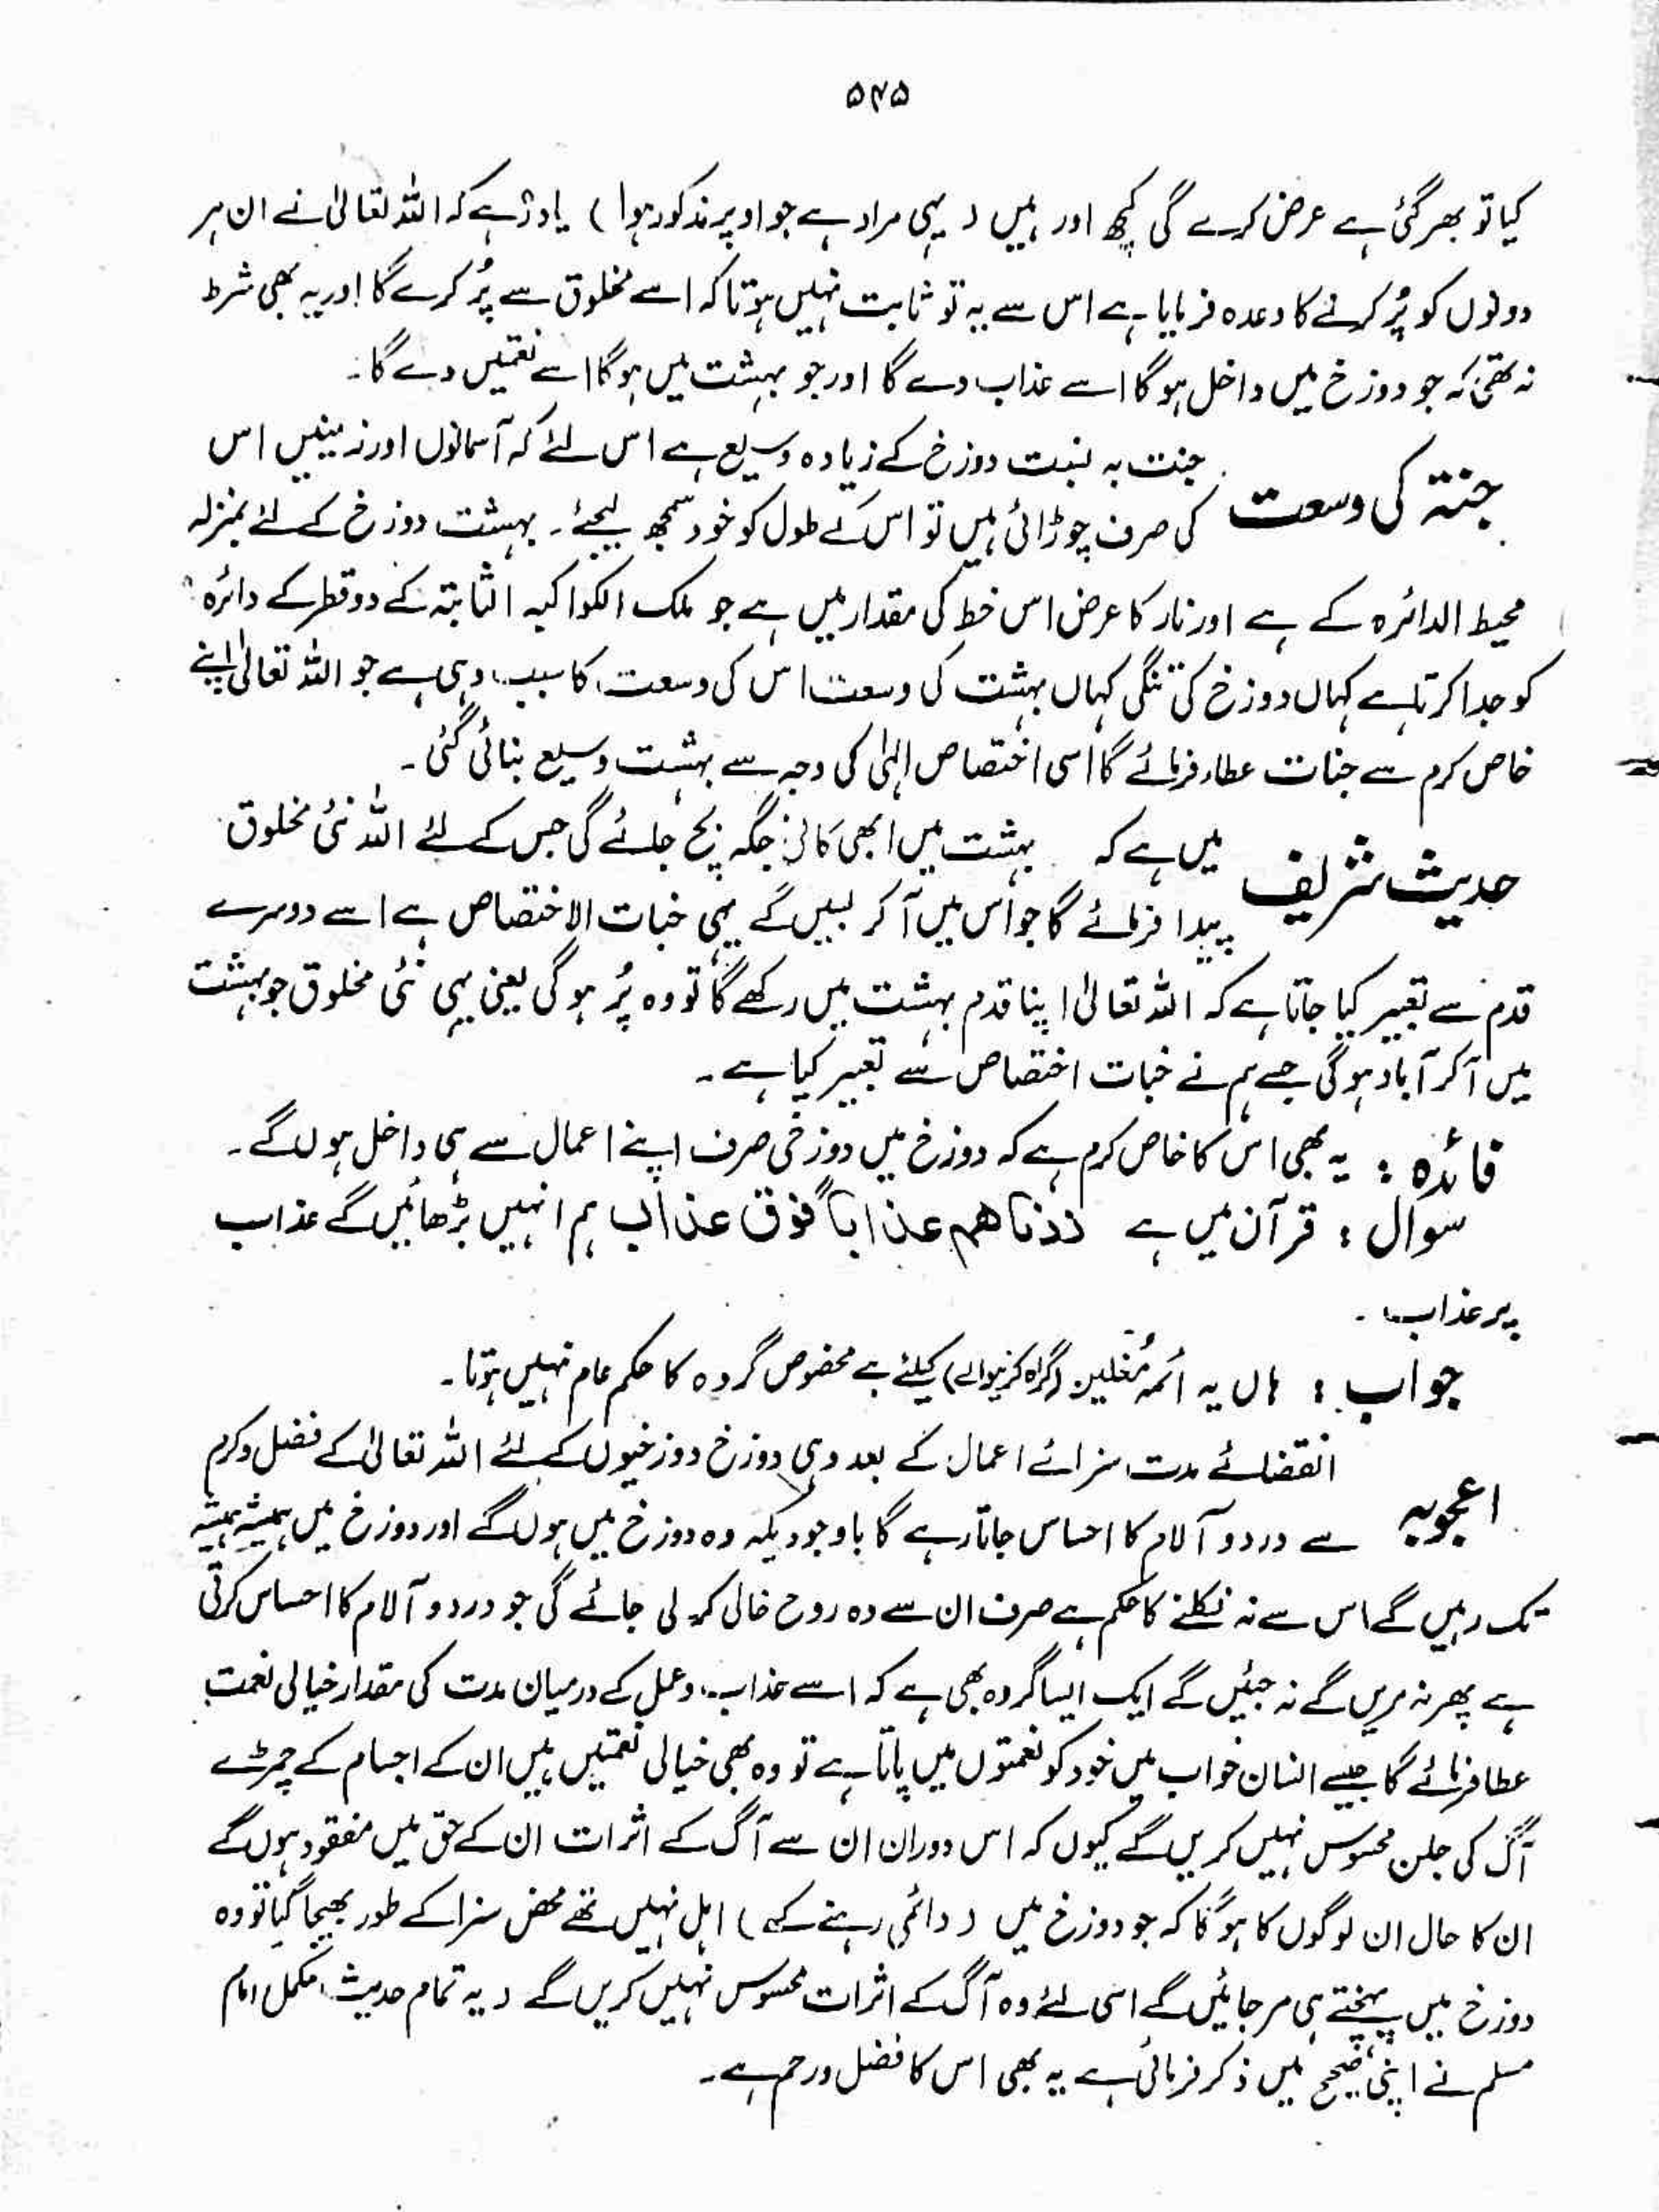 ۵۴۵
کیا تو بھر گئی ہے عرض کرے گی کچھ اور ہیں ( یہی مراد ہے جو اوپر مذکور ہوا ) یاد رہے کہ اللہ تعالیٰ نے ان ہر
دونوں کو پُر کرنے کا وعدہ فرمایا ہے اس سے یہ تو ثابت نہیں ہوتا کہ اسے مخلوق سے پُر کرے گا اور یہ بھی شرط
نہ تھی کہ جو دوزخ میں داخل ہو گا اسے عذاب دے گا اور جو بہشت میں ہو گا اسے نعمتیں دے گا۔
جنتہ کی وسعت جنت بہ نسبت دوزخ کے زیادہ وسیع ہے اس لئے کہ آسمانوں اور زمینیں اس
کی صرف چوڑائی ہیں تو اس کے طول کو خود سمجھ لیجئے۔ بہشت دوزخ کے لئے بمنزلہ
محیط الدائرہ کے ہے اور نار کا عرض اس خط کی مقدار میں ہے جو ملک الکواکبہ الثابتہ کے دو قطر کے دائرہ
کو جدا کرتا ہے کہاں دوزخ کی تنگی کہاں بہشت کی وسعت اس کی وسعت کا سبب وہی ہے جو اللہ تعالیٰ اپنے
خاص کرم سے جنات عطار فرمائے گا اسی اختصاص الٰہی کی وجہ سے بہشت وسیع بنائی گئی۔
حدیث شریف میں ہے کہ بہشت میں ابھی کافی جگہ بچ جائے گی جس کے لئے اللہ نئی مخلوق
پیدا فرمائے گا جو اس میں آ کر بسیں گے یہی خبات الاختصاص ہے اسے دوسرے
قدم سے تعبیر کیا جاتا ہے کہ اللہ تعالیٰ اپنا قدم بہشت میں رکھے گا تو وہ پُر ہو گی یعنی یہی نئی مخلوق جو بہشت
میں آ کر آباد ہو گی جسے ہم نے خبات اختصاص سے تعبیر کیا ہے۔
فائدہ : یہ بھی اس کا خاص کرم ہے کہ دوزخ میں دوزخی صرف اپنے اعمال سے ہی داخل ہوں گے۔
سوال : قرآن میں ہے زدناھم عذاباً فوق عذاب ہم انہیں بڑھائیں گے عذاب
پر عذاب۔
جواب : ہاں یہ ائمہ مُغلین (گمراہ کرنیوالے) کیلئے ہے مخصوص گروہ کا حکم عام نہیں ہوتا۔
اعجوبہ انقضائے مدت سزائے اعمال کے بعد وہی دوزخ دوزخیوں کے لئے اللہ تعالیٰ کے فضل و کرم
سے درد و آلام کا احساس جاتا رہے گا باوجودیکہ وہ دوزخ میں ہوں گے اور دوزخ میں ہمیشہ ہمیشہ
تک رہیں گے اس سے نہ نکلنے کا حکم ہے صرف ان سے وہ روح خالی کر لی جائے گی جو درد و آلام کا احساس کرتی
ہے پھر نہ مریں گے نہ جئیں گے ایک ایسا گروہ بھی ہے کہ اسے عذاب و عمل کے درمیان مدت کی مقدار خیالی نعمت
عطا فرمائے گا جیسے انسان خواب میں خود کو نعمتوں میں پاتا ہے تو وہ بھی خیالی نعمتیں ہیں ان کے اجسام کے چمڑے
آگ کی جلن محسوس نہیں کریں گے کیوں کہ اس دوران ان سے آگ کے اثرات ان کے حق میں مفقود ہوں گے
ان کا حال ان لوگوں کا ہو گا کہ جو دوزخ میں ( دائمی رہنے کے ) اہل نہیں تھے محض سزا کے طور بھیجا گیا تو وہ
دوزخ میں پہنچتے ہی مر جائیں گے اسی لئے وہ آگ کے اثرات محسوس نہیں کریں گے ( یہ تمام حدیث مکمل امام
مسلم نے اپنی صحیح میں ذکر فرمائی ہے یہ بھی اس کا فضل و رحم ہے۔